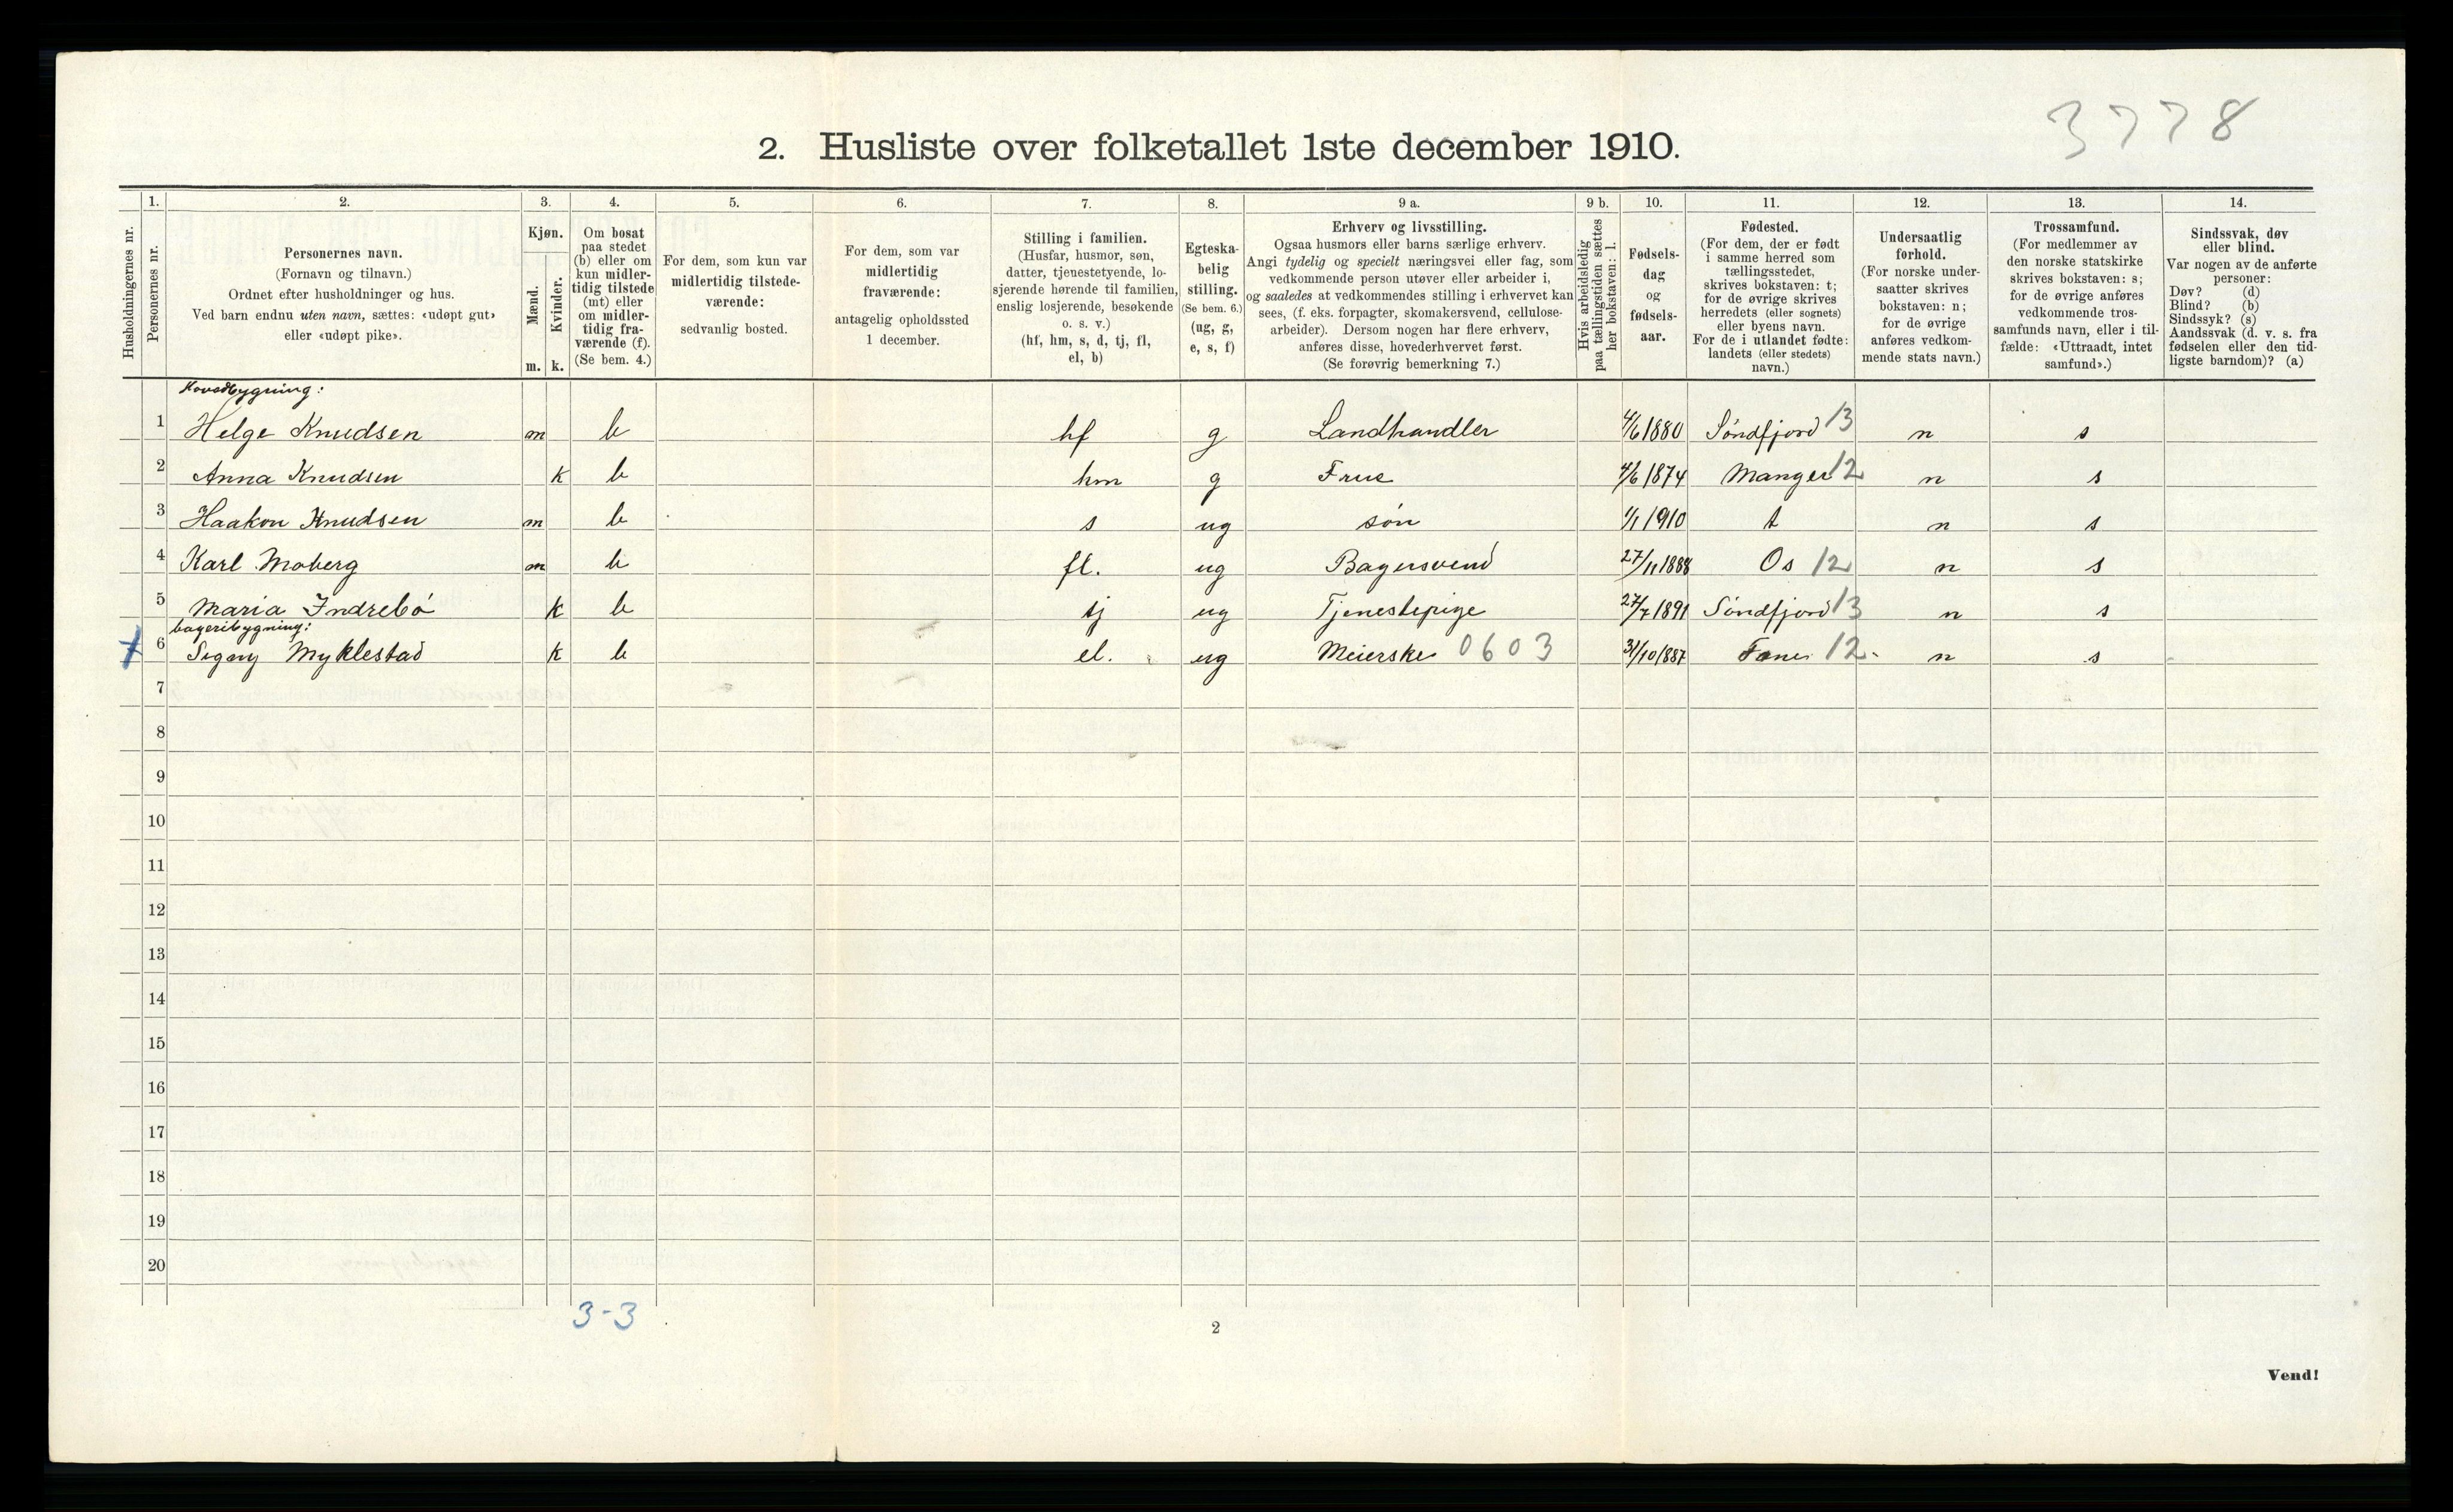 3778
2. Husliste over folketallet 1ste december 1910.
Husholdningernes nr.
1.
Personernes nr.
2.
Personernes navn.
(Fornavn og tilnavn.)
Ordnet efter husholdninger og hus.
Ved barn endnu uten navn, sættes: «udøpt gut»
eller «udøpt pike».
3.
Kjøn.
Mænd.
Kvinder.
m. k.
4.
Om bosat
paa stedet
(b) eller om
kun midler-
tidig tilstede
(mt) eller
om midler-
tidig fra-
værende (f).
(Se bem. 4.)
5.
For dem, som kun var
midlertidig tilstede-
værende:
sedvanlig bosted.
6.
For dem, som var
midlertidig
fraværende:
antagelig opholdssted
1 december.
7.
Stilling i familien.
(Husfar, husmor, søn,
datter, tjenestetyende, lo-
sjerende hørende til familien,
enslig losjerende, besøkende
o. s. v.)
(hf, hm, s, d, tj, fl,
el, b)
8.
Egteska-
belig
stilling.
(Se bem. 6.)
(ug, g,
e, s, f)
9 a.
Erhverv og livsstilling.
Ogsaa husmors eller barns særlige erhverv.
Angi tydelig og specielt næringsvei eller fag, som
vedkommende person utøver eller arbeider i,
og saaledes at vedkommendes stilling i erhvervet kan
sees, (f. eks. forpagter, skomakersvend, cellulose-
arbeider). Dersom nogen har flere erhverv,
anføres disse, hovederhvervet først.
(Se forøvrig bemerkning 7.)
9 b.
Hvis arbeidsledig
paa tællingstiden sættes
her bokstaven: l.
10.
Fødsels-
dag
og
fødsels-
aar.
11.
Fødested.
(For dem, der er født
i samme herred som
tællingsstedet,
skrives bokstaven: t;
for de øvrige skrives
herredets (eller sognets)
eller byens navn.
For de i utlandet fødte:
landets (eller stedets)
navn.)
12.
Undersaatlig
forhold.
(For norske under-
saatter skrives
bokstaven: n;
for de øvrige
anføres vedkom-
mende stats navn.)
13.
Trossamfund.
(For medlemmer av
den norske statskirke
skrives bokstaven: s;
for de øvrige anføres
vedkommende tros-
samfunds navn, eller i til-
fælde: «Uttraadt, intet
samfund».)
14.
Sindssvak, døv
eller blind.
Var nogen av de anførte
personer:
Døv? (d)
Blind? (b)
Sindssyk? (s)
Aandssvak (d. v. s. fra
fødselen eller den tid-
ligste barndom)? (a)
Hovedbygning:
1 Helge Knudsen m b hf g Landhandler 4/6 1880 Søndfjord 13 n s
2 Anna Knudsen k b hm g Frue 4/6 1874 Manger 12 n s
3 Haakon Knudsen m b s ug søn 1/1 1910 t n s
4 Karl Moberg m b fl. ug Bagersvend 27/11 1888 Os 12 n s
5 Maria Indrebø k b tj ug Tjenestepige 27/7 1891 Søndfjord 13 n s
bageribygning:
6 Signy Myklestad k b el. ug Meierske 0603 31/10 1887 Fane 12 n s
7
8
9
10
11
12
13
14
15
16
17
18
19
20
3-3
2
Vend!